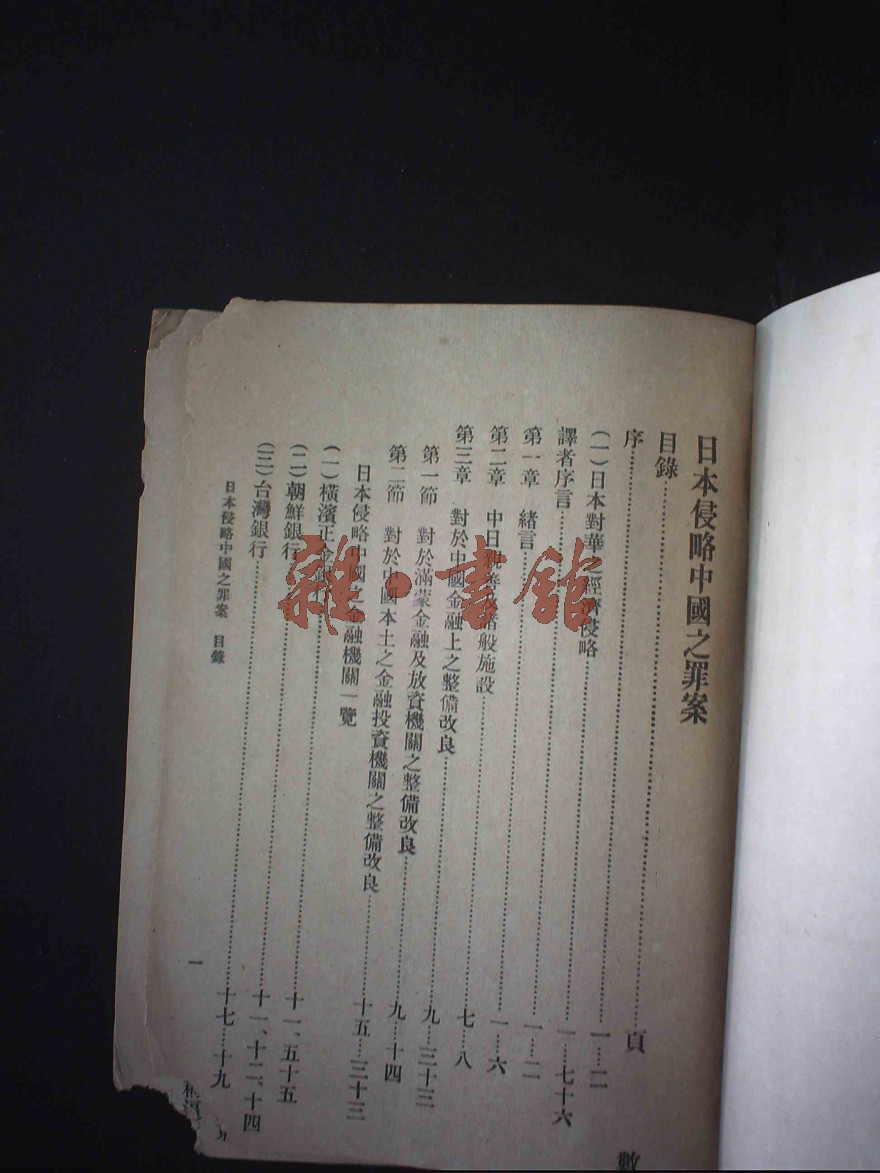 日本侵略中國之罪案
目錄……頁數
序……一…二
(一)日本對華 經濟侵略……一…七十六
譯者序言……一…二
第一章 緒言……一…六
第二章 中日親善 諸般施設……七…八
第三章 對於中國金融上之整備改良……九…三十三
第一節 對於滿蒙金融及放資機關之整備改良……九…十四
第二節 對於中國本土之金融投資機關之整備改良……十五…三十三
日本侵略中國之金融機關一覽
(一)橫濱正金銀行……十一、五十五
(二)朝鮮銀行……十一、十二、十四
(三)台灣銀行……十七…十九
日本侵略中國之罪案 目錄
一
雜·書館